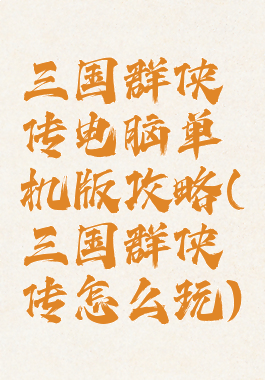 三国群侠
传电脑单
机版攻略(
三国群侠
传怎么玩)